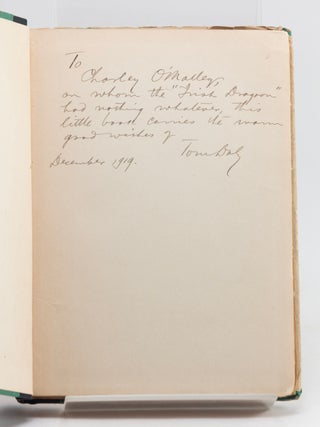 To
Charley O'Malley,
on whom the "Irish Dragon"
had nothing whatever, this
little book carries the warm
good wishes of
Tom Daly
December 1919.